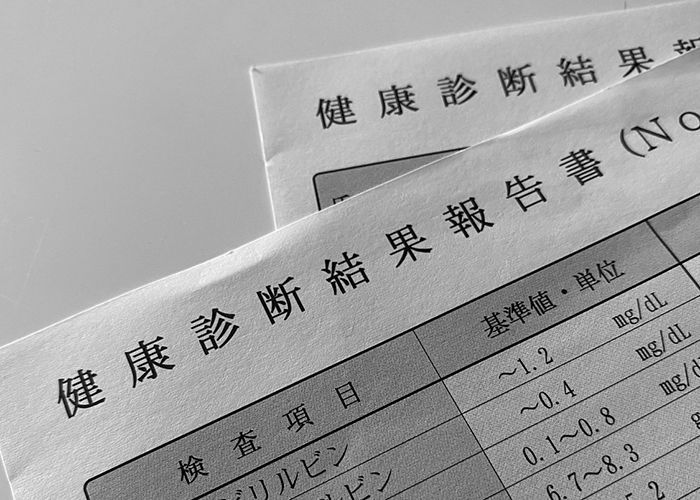 健康診断結果
健康診断結果報告書(No
検査項目 基準値・単位
ビリルビン ～1.2 mg/dL
ビン ～0.4 mg/dL
0.1～0.8
6.7～8.3